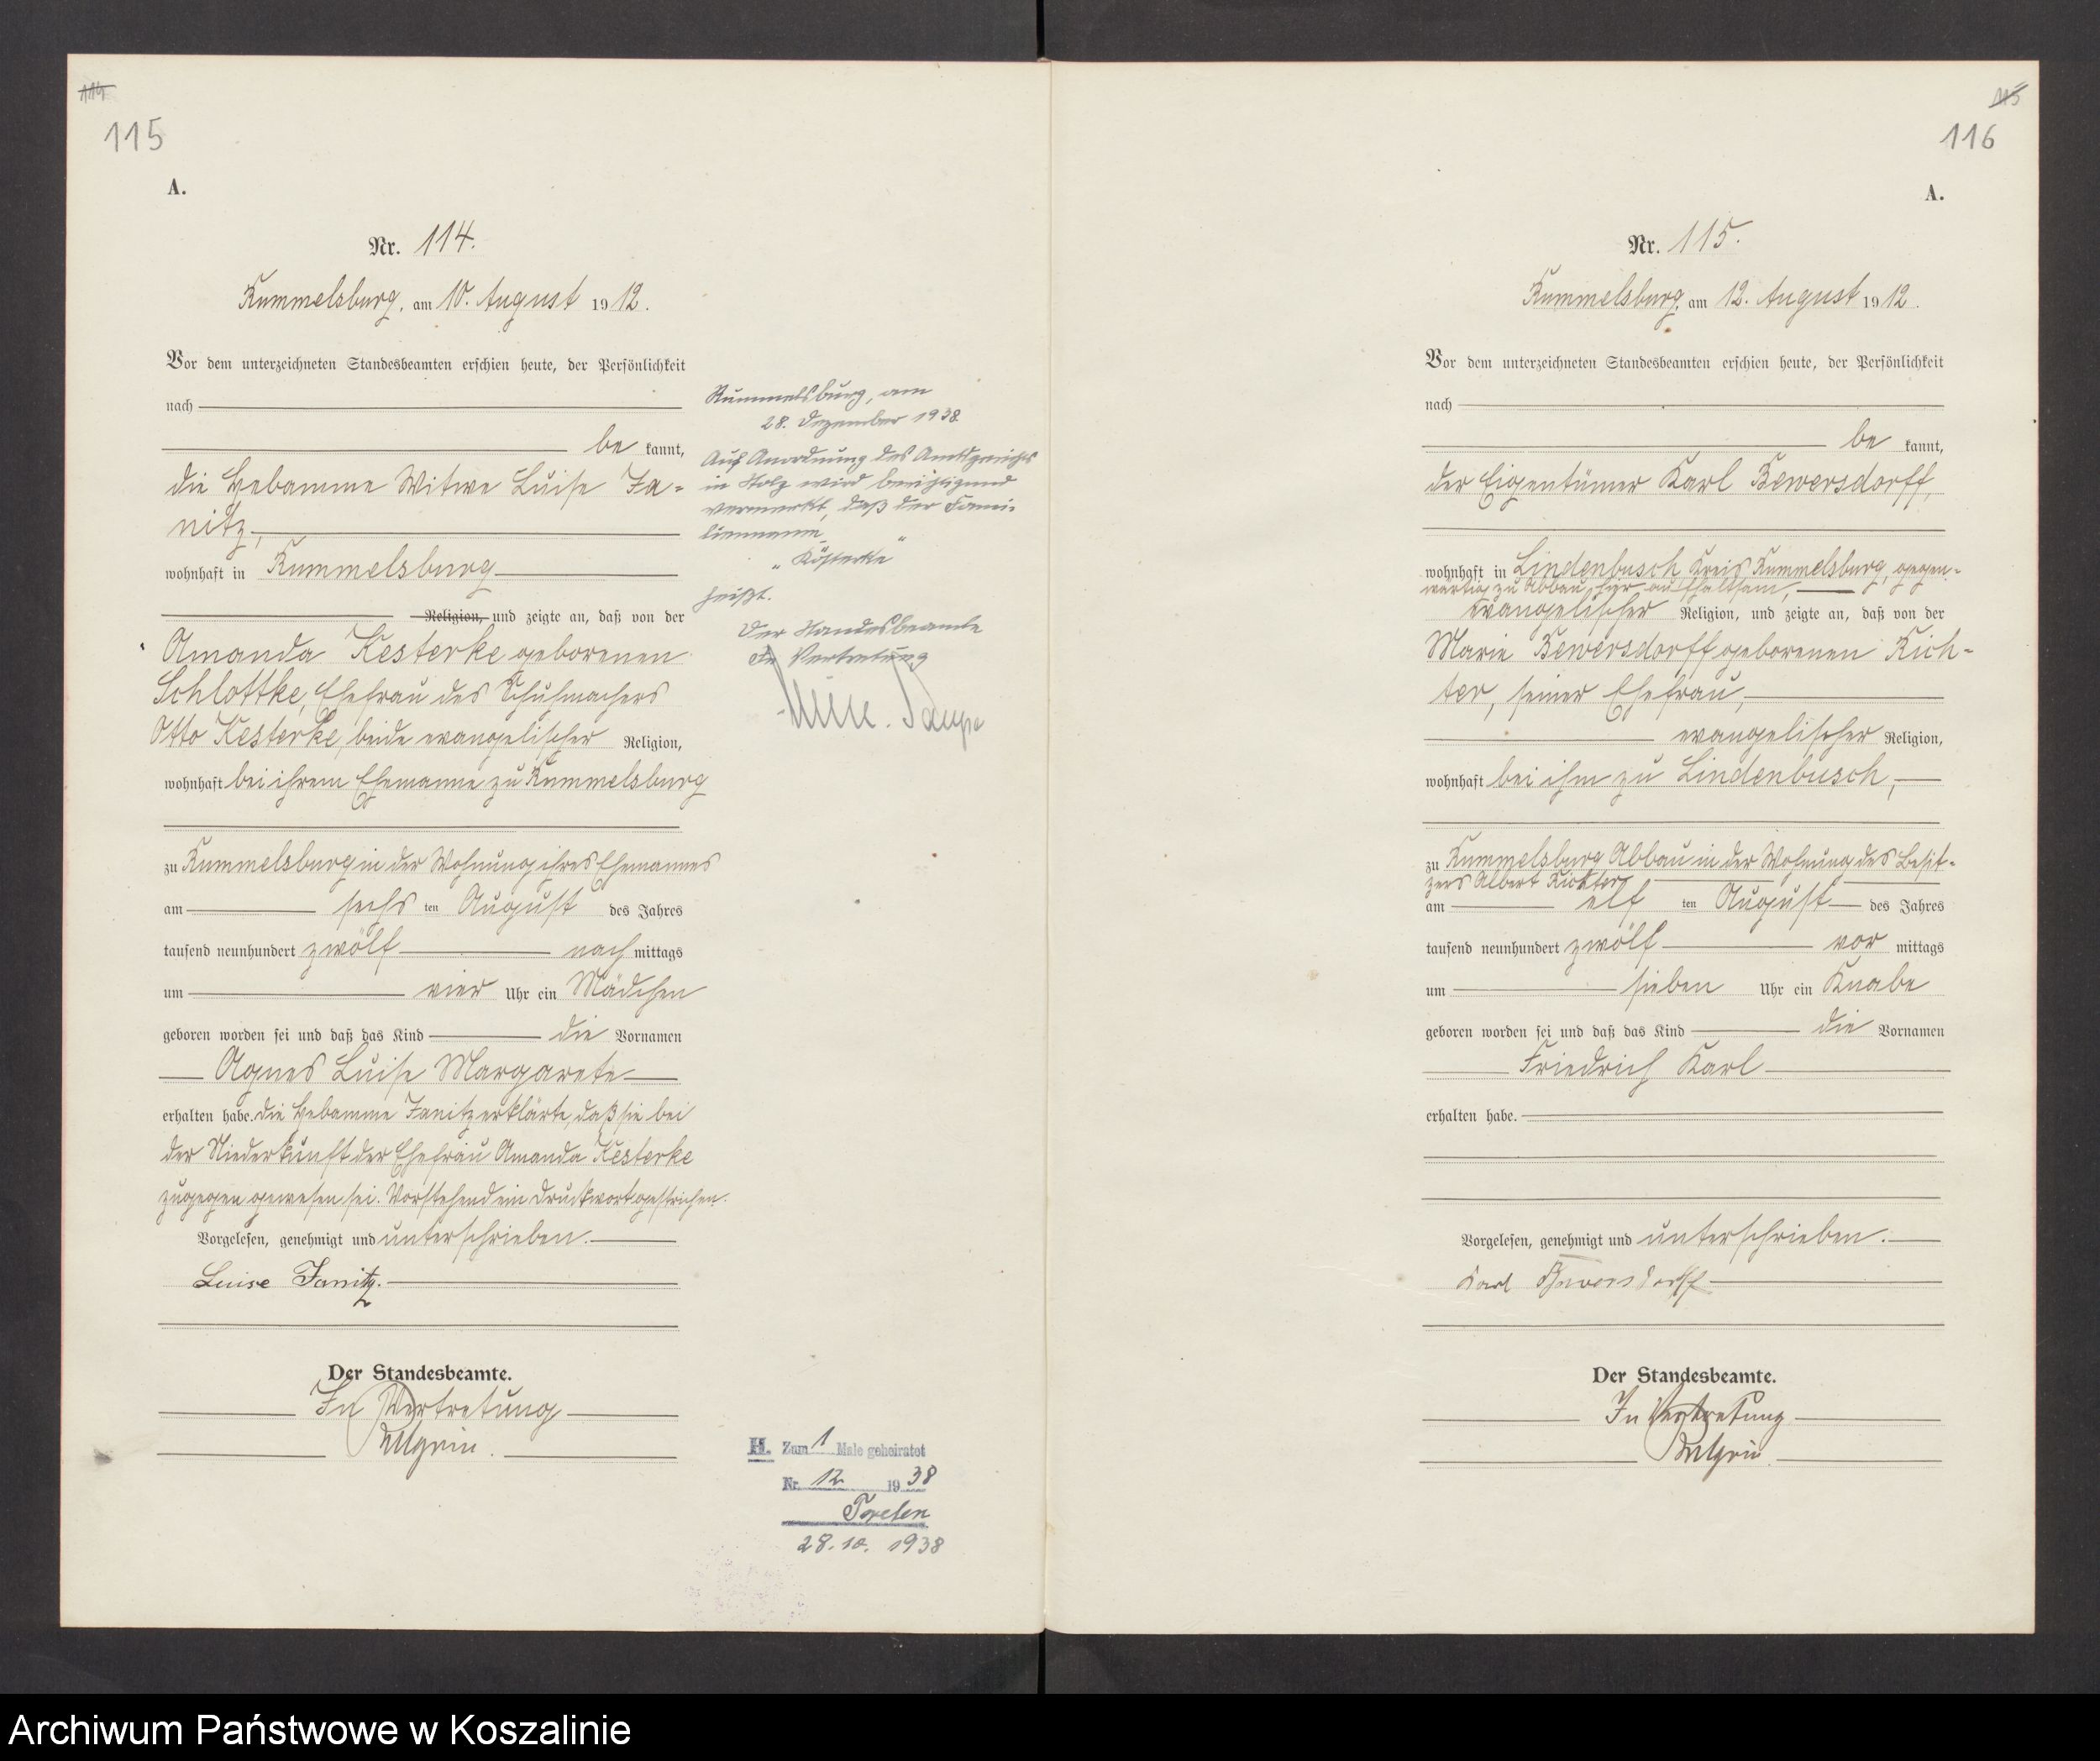 114
115
A.
Nr. 114.
Rummelsburg, am 10. August 1912.
Vor dem unterzeichneten Standesbeamten erschien heute, der Persönlichkeit
nach
be kannt,
die Hebamme Witwe Luise Ja-
nitz,
wohnhaft in Rummelsburg
Religion, und zeigte an, daß von der
Amanda Kesterke geborenen
Schlottke, Ehefrau des Schuhmachers
Otto Kesterke, beide evangelischer Religion,
wohnhaft bei ihrem Ehemanne zu Rummelsburg
zu Rummelsburg in der Wohnung ihres Ehemannes
am sechs ten August des Jahres
tausend neunhundert zwölf nach mittags
um vier Uhr ein Mädchen
geboren worden sei und daß das Kind die Vornamen
Agnes Luise Margarete
erhalten habe. Die Hebamme Janitz erklärte, daß sie bei
der Niederkunft der Ehefrau Amanda Kesterke
zugegen gewesen sei. Vorstehend ein Druckwort gestrichen.
Vorgelesen, genehmigt und unterschrieben.
Luise Janitz.
Der Standesbeamte.
In Vertretung
Rummelsburg, am
28. Dezember 1938
Auf Anordnung des Amtsgerichts
in Stolp wird berichtigend
vermerkt, daß der Fami-
lienname
„Kösterke"
heißt.
Der Standesbeamte
In Vertretung
H. Zum 1 Male geheiratet
Nr. 12 1938
28.10. 1938
115
116
A.
Nr. 115.
Rummelsburg, am 12. August 1912.
Vor dem unterzeichneten Standesbeamten erschien heute, der Persönlichkeit
nach
be kannt,
der Eigentümer Karl Bewersdorff,
wohnhaft in Lindenbusch, Kreis Rummelsburg, gegen-
wärtig zu Abbau hier aufhaltsam,
evangelischer Religion, und zeigte an, daß von der
Marie Bewersdorff geborenen Rich-
ter, seiner Ehefrau,
evangelischer Religion,
wohnhaft bei ihm zu Lindenbusch,
zu Rummelsburg Abbau in der Wohnung des Besit-
zers Albert Richter
am elf ten August des Jahres
tausend neunhundert zwölf vor mittags
um sieben Uhr ein Knabe
geboren worden sei und daß das Kind die Vornamen
Friedrich Karl
erhalten habe.
Vorgelesen, genehmigt und unterschrieben.
Karl Bewersdorff
Der Standesbeamte.
In Vertretung
Archiwum Państwowe w Koszalinie